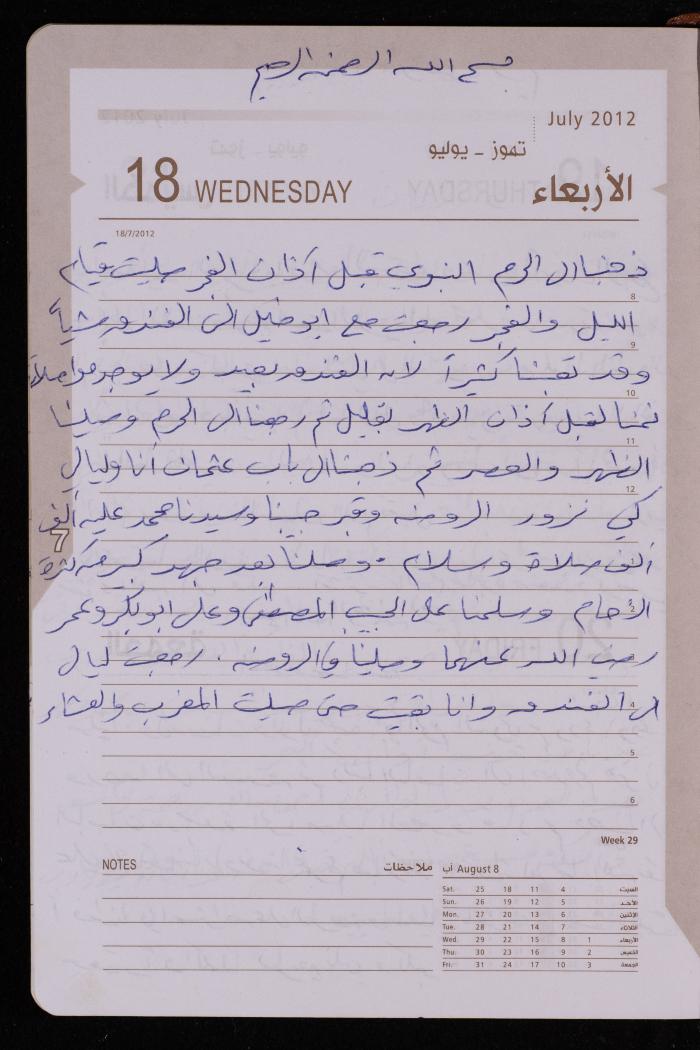 بسم الله الرحمن الرحيم
July 2012
تموز - يوليو
18 WEDNESDAY الأربعاء
18/7/2012
ذهبنا الى الحرم النبوي قبل آذان الفجر صليت قيام
8
الليل والفجر رجعت مع ابو خليل الى الفندق مشياً
9
وقد تعبنا كثيراً لأن الفندق بعيد ولا يوجد مواصلات
10
نمنا لقبل آذان الظهر بقليل ثم رجعنا الى الحرم وصلينا
11
الظهر والعصر ثم ذهبنا الى باب عثمان أنا وليالي
12
كي نزور الروضة وقبر حبيبنا وسيدنا محمد عليه ألف
7
ألف صلاة وسلام . وصلنا بعد جهد كبير من كثرة
الأحام وسلمنا على الحبيب المصطفى وعلى ابو بكر وعمر
2
رضي الله عنهما وصلينا في الروضة . رجعت ليالي
الى الفندق وانا بقيت حتى صليت المغرب والعشاء
4
5
6
Week 29
NOTES ملاحظات
آب August 8
Sat. 25 18 11 4 السبت
Sun. 26 19 12 5 الأحد
Mon. 27 20 13 6 الإثنين
Tue. 28 21 14 7 الثلاثاء
Wed. 29 22 15 8 1 الأربعاء
Thu. 30 23 16 9 2 الخميس
Fri. 31 24 17 10 3 الجمعة